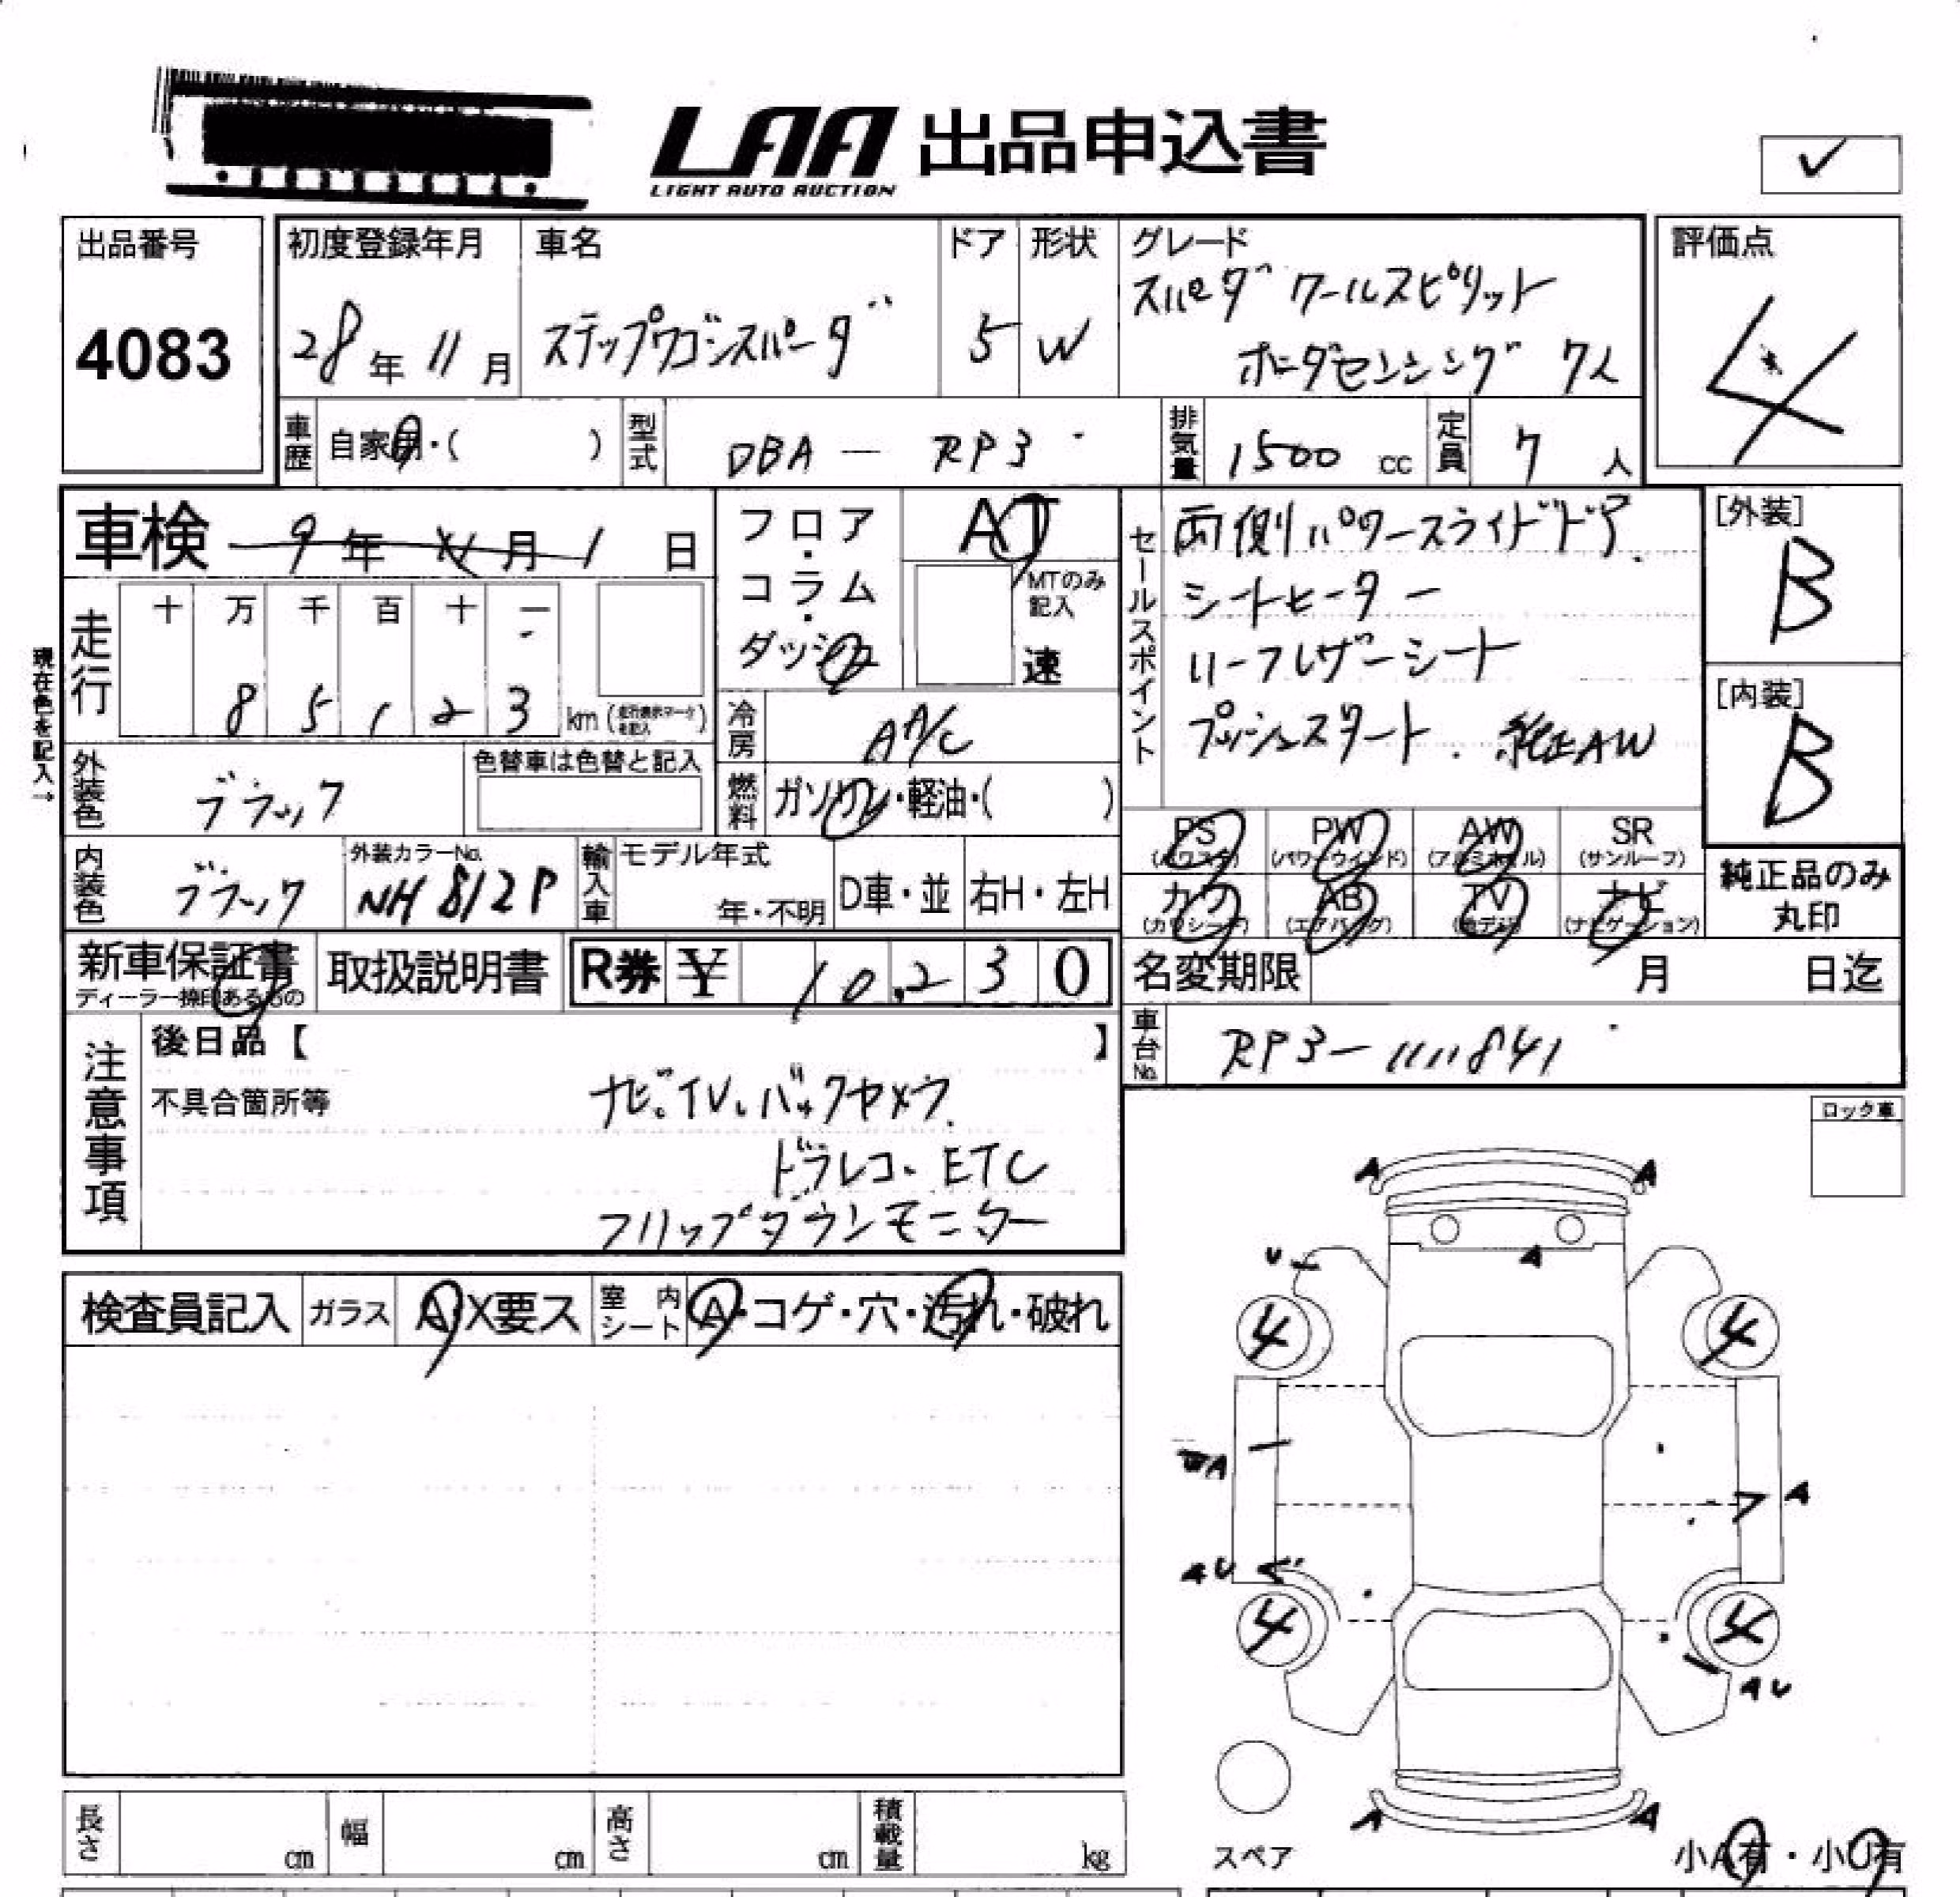 LAA 出品申込書
LIGHT AUTO AUCTION
✓
出品番号
4083
初度登録年月
28年 11月
車名
ステップワゴンスパーダ
ドア
5
形状
W
グレード
スパーダ クールスピリット
ホンダセンシング 7人
評価点
4
車歴
自家用・( )
型式
DBA — RP3
排気量
1500 cc
定員
7 人
車検 9年 11月 1日
フロア・コラム・ダッシュ
AT
MTのみ記入
速
セールスポイント
両側パワースライドドア.
シートヒーター
ハーフレザーシート
プッシュスタート. 純正AW
[外装]
B
[内装]
B
現在色を記入→
走行
十 万 千 百 十 一
8 5 1 2 3 km (走行表示マークを記入)
冷房
AA/C
燃料
ガソリン・軽油・( )
外装色
ブラック
色替車は色替と記入
内装色
ブラック
外装カラーNo.
NH 812P
輸入車
モデル年式
年・不明
D車・並
右H・左H
PS (パワステ)
PW (パワーウインド)
AW (アルミホイル)
SR (サンルーフ)
カワ (カワシート)
AB (エアバッグ)
TV (地デジ)
ナビ (ナビゲーション)
純正品のみ
丸印
新車保証書
ディーラー捺印あるもの
取扱説明書
R券 ¥ 10,230
名変期限 月 日迄
車台No.
RP3-1111841
注意事項
後日品【 】
不具合箇所等
ナビ. TV. バックカメラ.
ドラレコ. ETC
フリップダウンモニター
ロック車
検査員記入
ガラス
A・X要ス
室内シート
A・コゲ・穴・汚れ・破れ
A A
U A
4 4
A
A
AU
4 4
AU
A A
スペア
小A有・小U有
長さ cm
幅 cm
高さ cm
積載量 kg